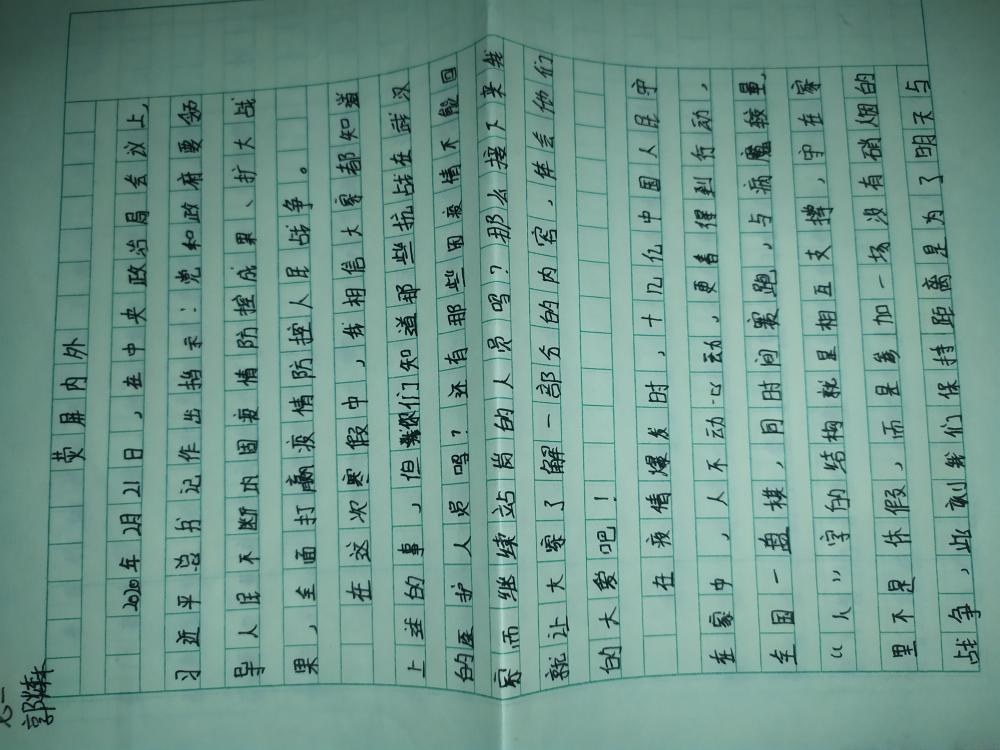 郭
荧屏内外
2020年2月21日，在中央政治局会议上，
习近平总书记作出指示：党和政府要领
导人民不断巩固疫情防控成果、扩大战
果，全面打赢疫情防控人民战争。
在这次寒假中，我相信大家都知道
上述的事，但你们知道那些抗战在武汉
的医护人员吗？还有那些因疫情不能回
家而继续站岗的人员吗？那么接下来我
就让大家了解一部分的内容，体会他们
的大爱吧！
在疫情爆发时，十几亿中国人民守
在家中，人不动心动，更看得到行动，
全国一盘棋，同时间赛跑，与病魔较量，
“人”字的结构就是相互支撑，守在家
里不是休假，而是参加一场没有硝烟的
战争，此刻我们保持距离是为了明天与